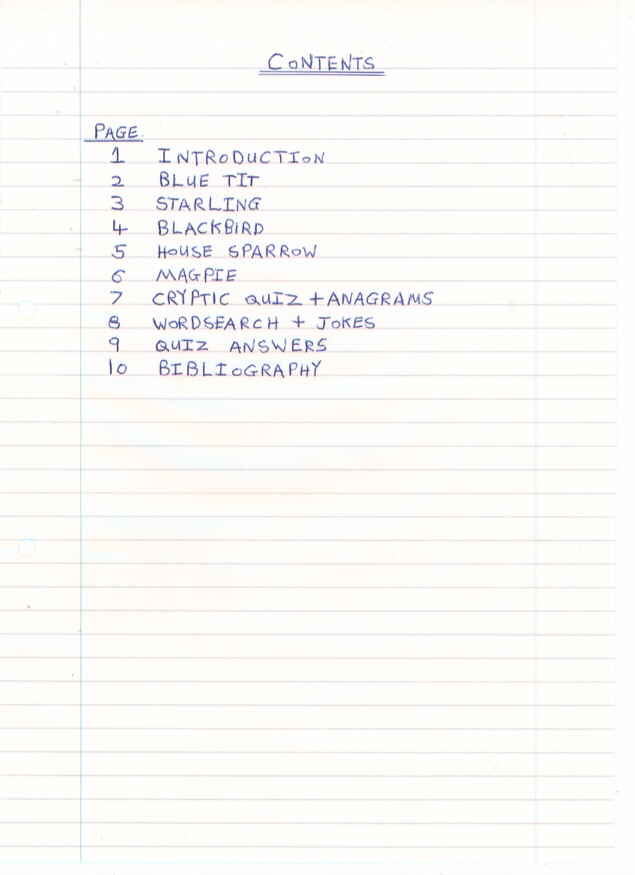 CONTENTS
PAGE.
1 INTRODUCTION
2 BLUE TIT
3 STARLING
4 BLACKBIRD
5 HOUSE SPARROW
6 MAGPIE
7 CRYPTIC QUIZ + ANAGRAMS
8 WORDSEARCH + JOKES
9 QUIZ ANSWERS
10 BIBLIOGRAPHY